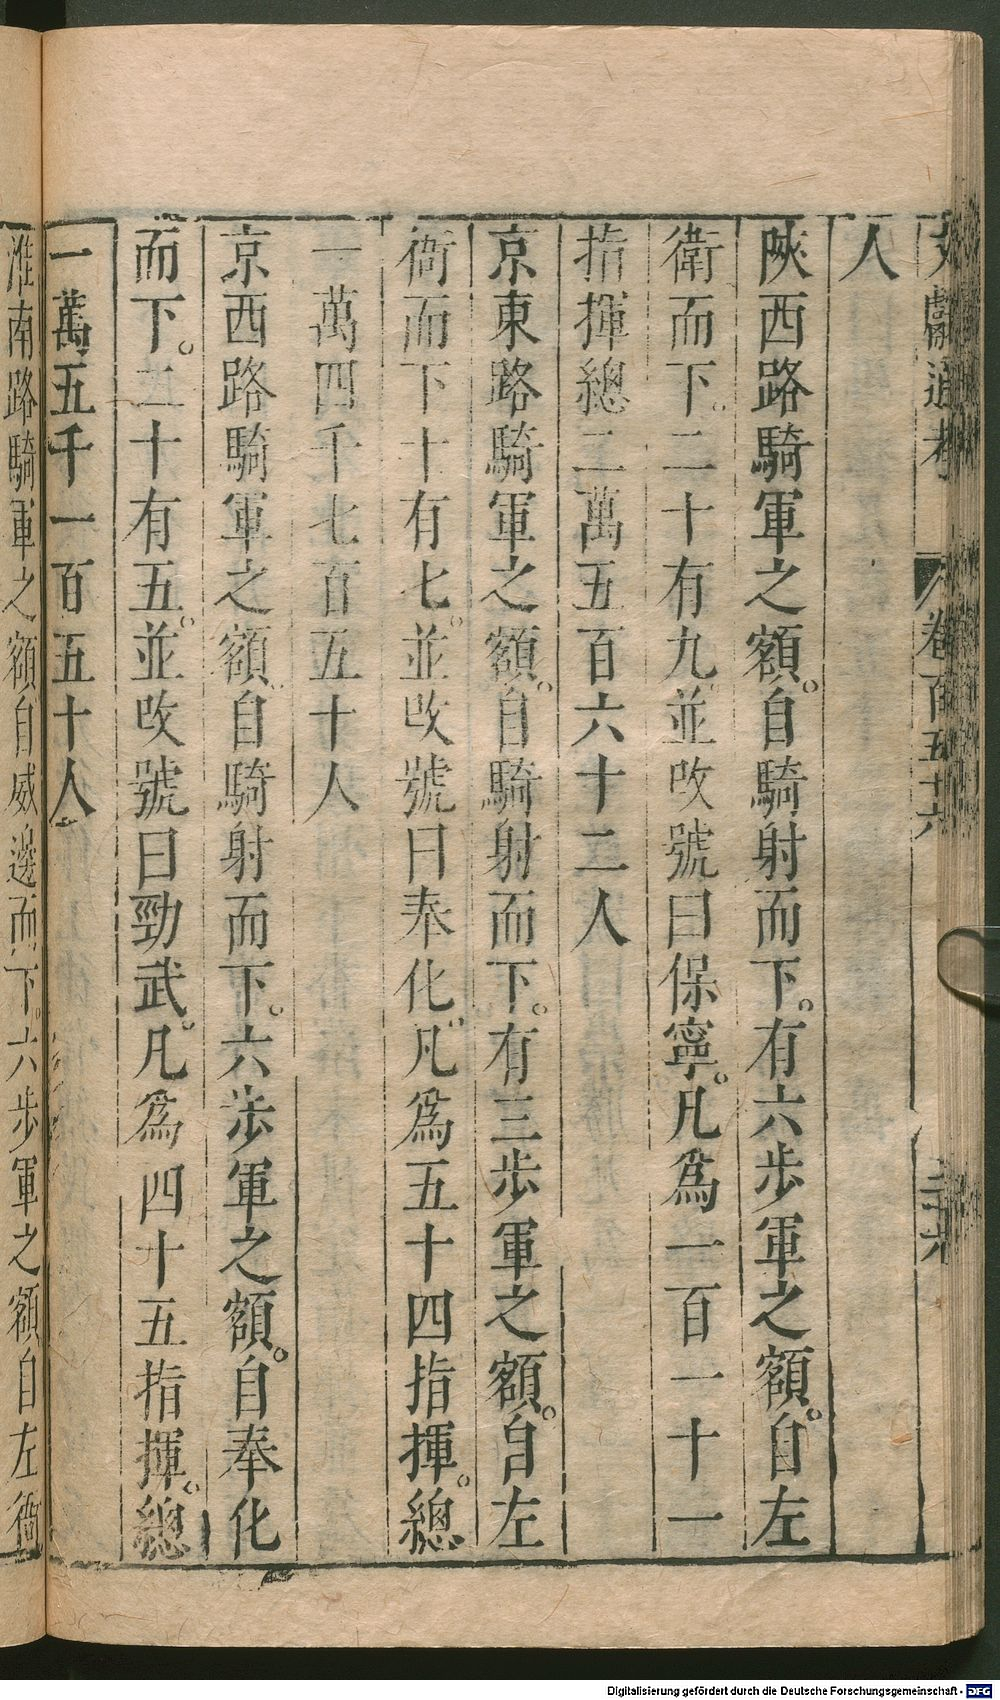 文獻通考 卷百五十六 三六
人
陜西路騎軍之額。自騎射而下。有六步軍之額。自左
衛而下。二十有九。並改號曰保寧。凡爲一百一十一
指揮總二萬五百六十二人
京東路騎軍之額。自騎射而下。有三步軍之額。自左
衙而下十有七。並改號曰奉化。凡爲五十四指揮。總
一萬四千七百五十人
京西路騎軍之額。自騎射而下。六步軍之額。自奉化
而下。二十有五。並改號曰勁武。凡爲四十五指揮。總
一萬五千一百五十人
淮南路騎軍之額自威邊而下。六步軍之額自左衙
Digitalisierung gefördert durch die Deutsche Forschungsgemeinschaft - DFG